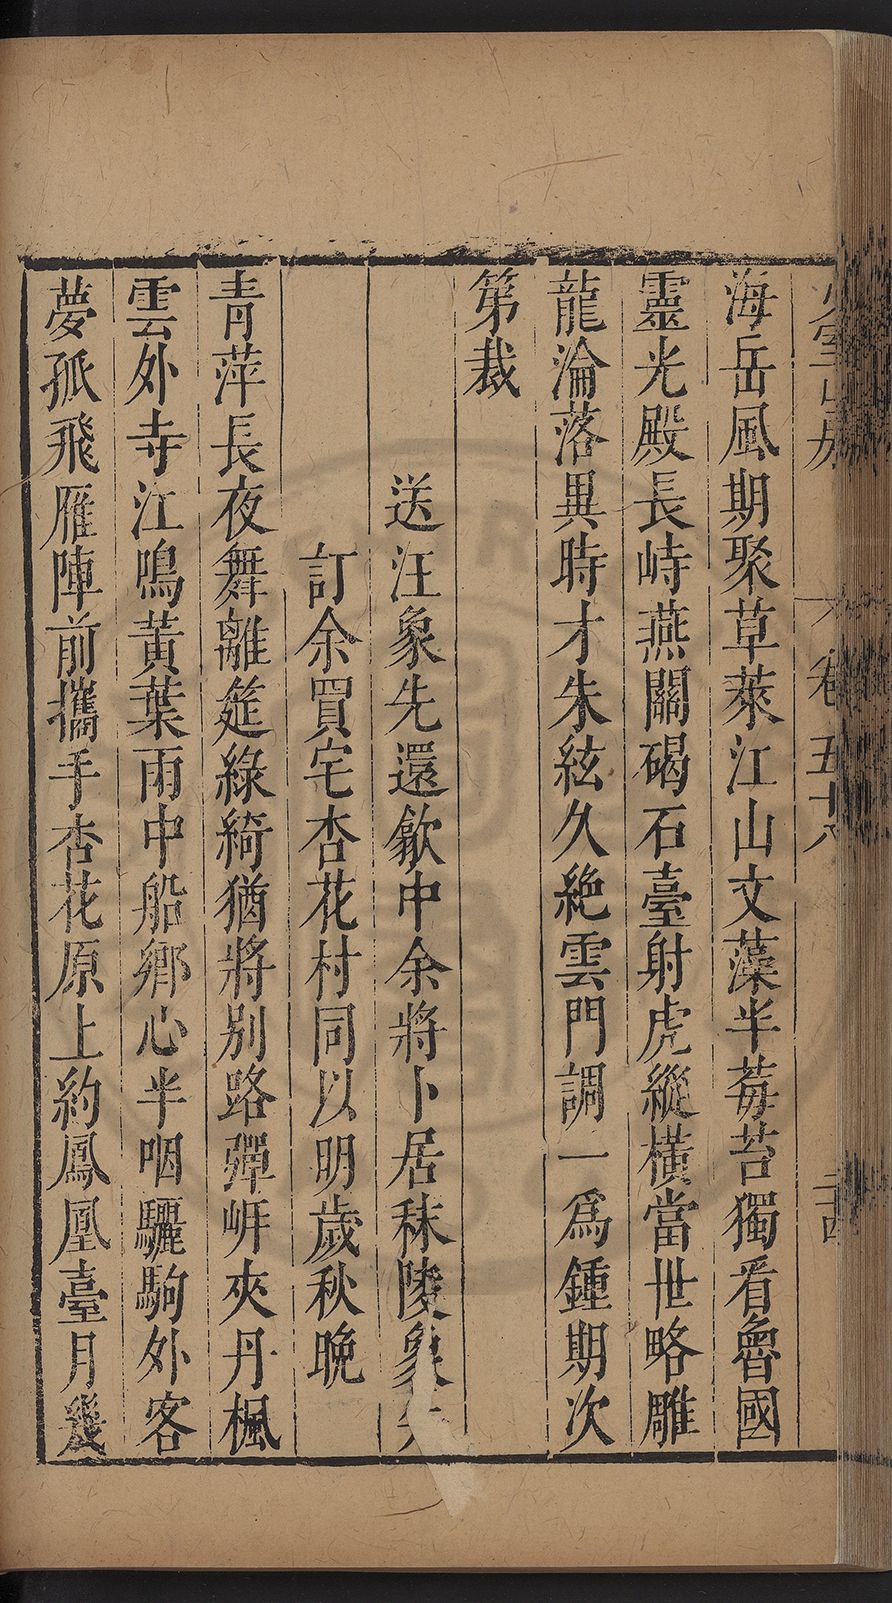 少室山房
卷五十八
海岳風期聚草萊江山文藻半莓苔獨看魯國
靈光殿長峙燕關碣石臺射虎縱橫當世略雕
龍淪落異時才朱絃久絶雲門調一爲鍾期次
第裁
送汪象先還歙中余將卜居秣陵象先
訂余買宅杏花村同以明歲秋晚
青萍長夜舞離筵綠綺猶將別路彈岍夾丹楓
雲外寺江鳴黃葉雨中船鄉心半咽驪駒外客
夢孤飛雁陣前攜手杏花原上約鳳凰臺月幾